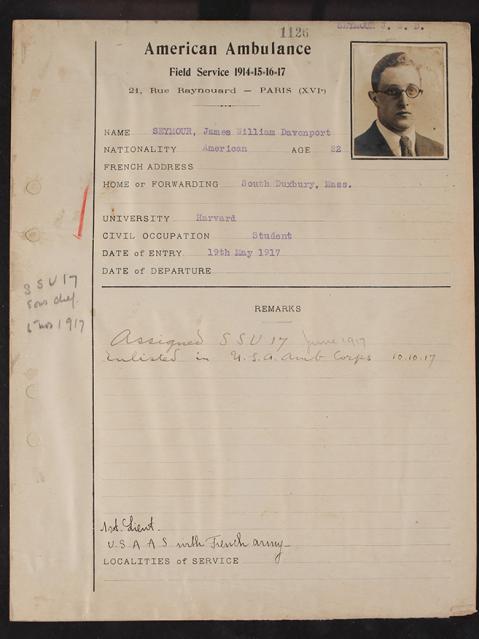 1126
SEYMOUR J. W. D.
American Ambulance
Field Service 1914-15-16-17
21, Rue Raynouard — PARIS (XVIe)
NAME SEYMOUR, James William Davenport
NATIONALITY American AGE 22
FRENCH ADDRESS
HOME or FORWARDING South Duxbury, Mass.
UNIVERSITY Harvard
CIVIL OCCUPATION Student
DATE of ENTRY 19th May 1917
DATE of DEPARTURE
SSU 17
Sous chef
1917
REMARKS
Assigned SSU 17 June 1917
Enlisted in U.S.A. Amb Corps 10.10.17
1st Lieut.
U S A A S with French army
LOCALITIES of SERVICE